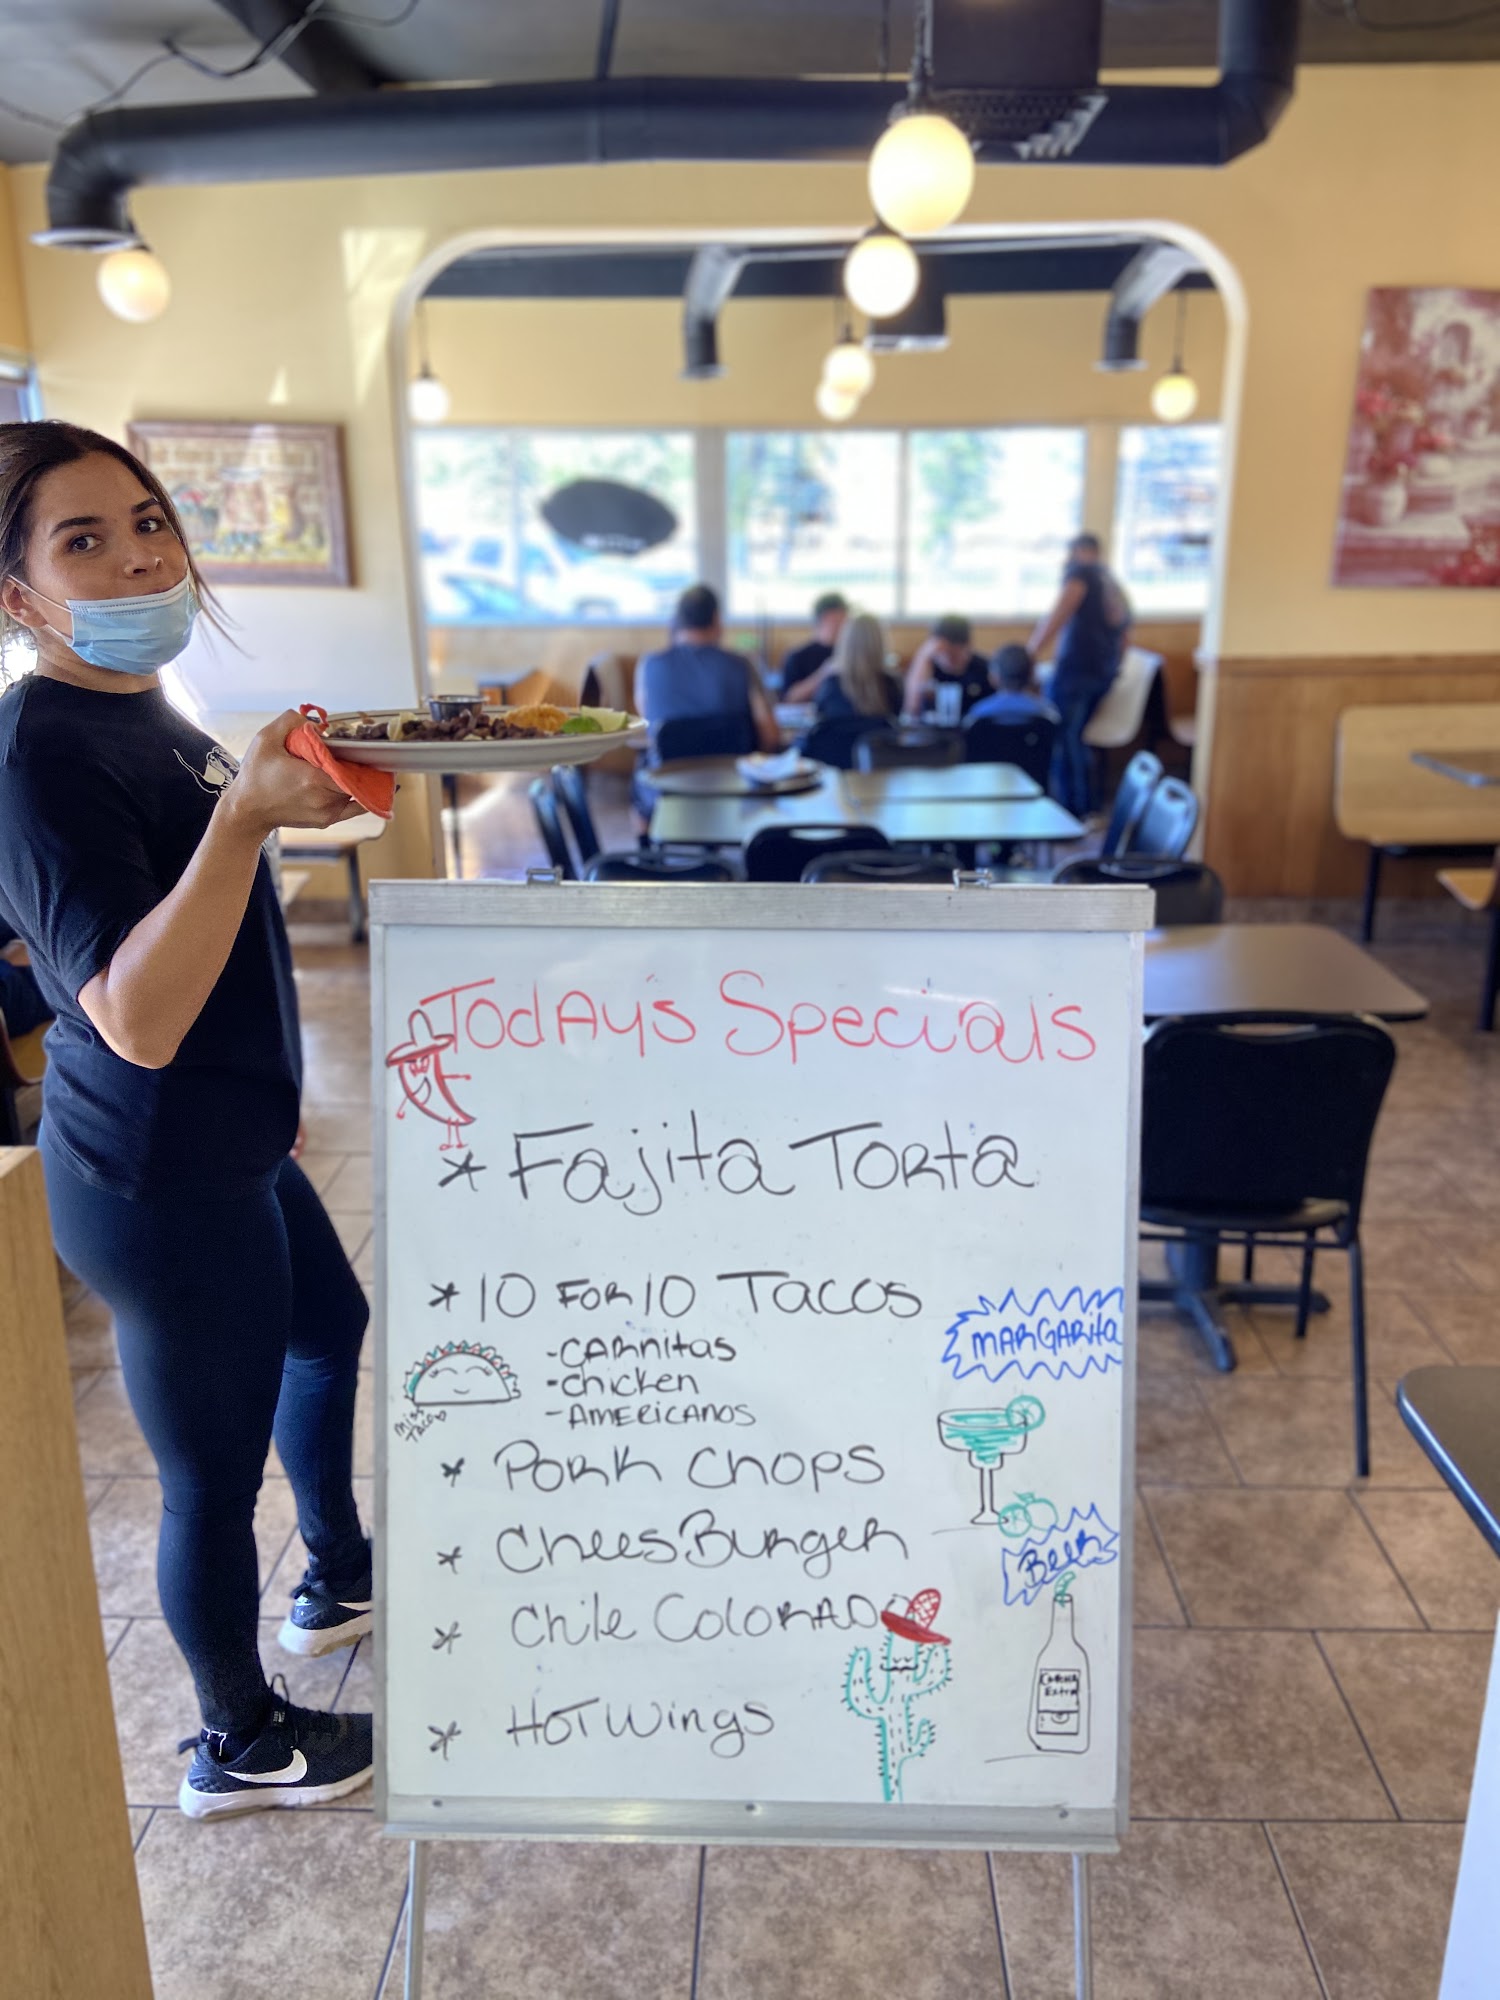 TodAy's Specials
* Fajita Torta
* 10 FOR 10 Tacos
- CARnitas
- Chicken
- AMERICANOS
Miss
Taco
MARGARita
* PORK Chops
* CheesBurger
BEER
* Chile ColoRADO
Corona
Extra
* HOT Wings